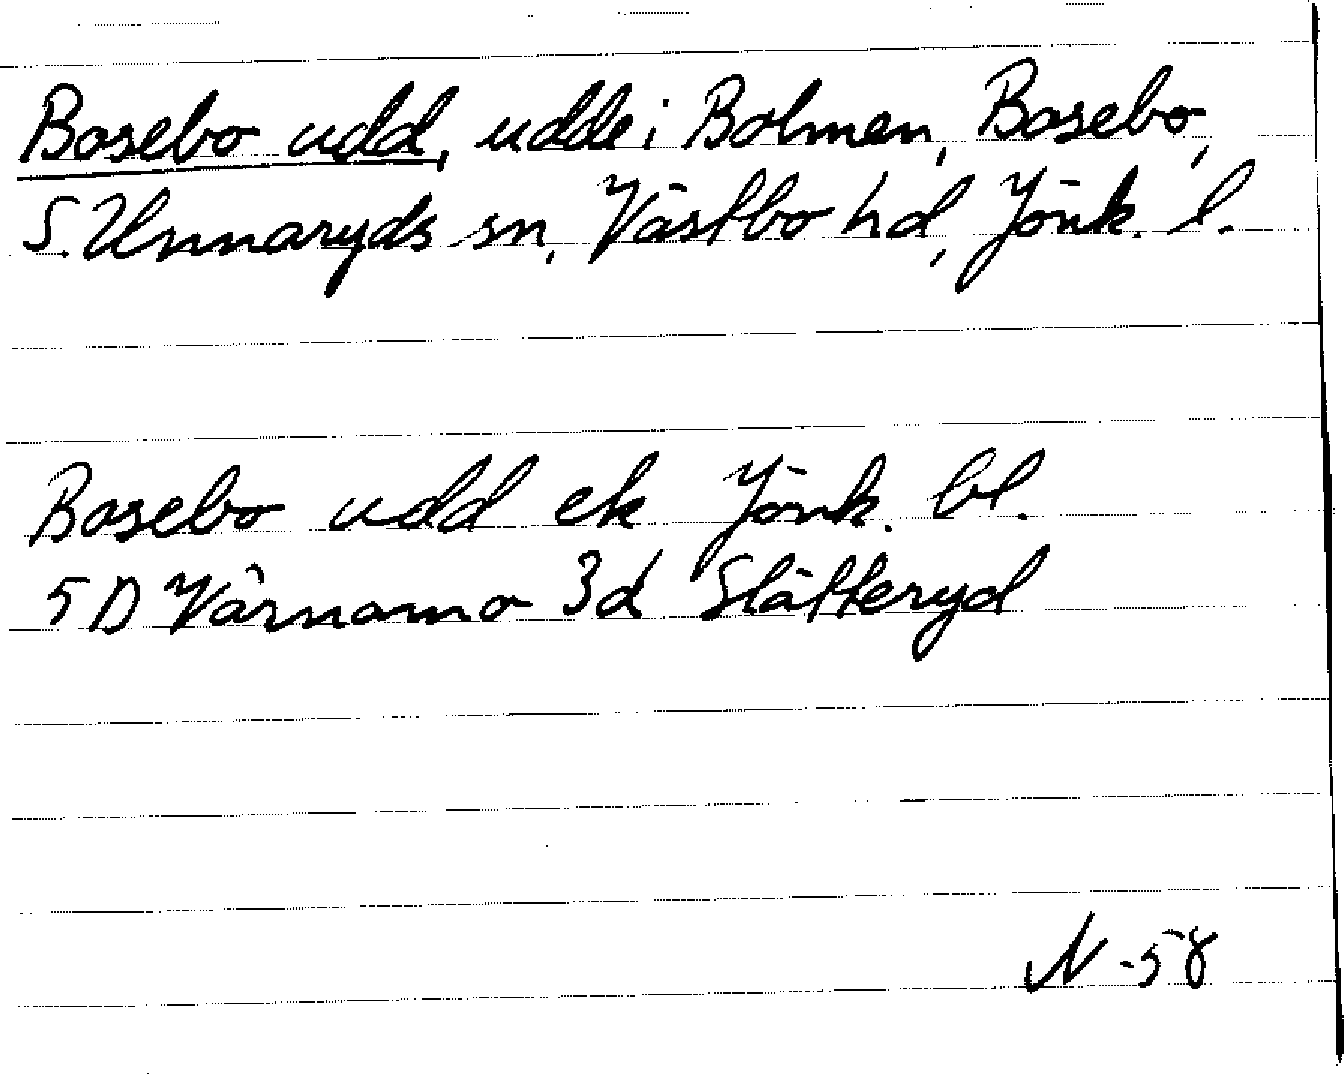 Bosebo udd, udde i Bolmen, Bosebo,
S. Unnaryds sn, Västbo hd, Jönk. l.
Bosebo udd ek Jönk. bl.
5 D Värnamo 3d Slätteryd
N -58